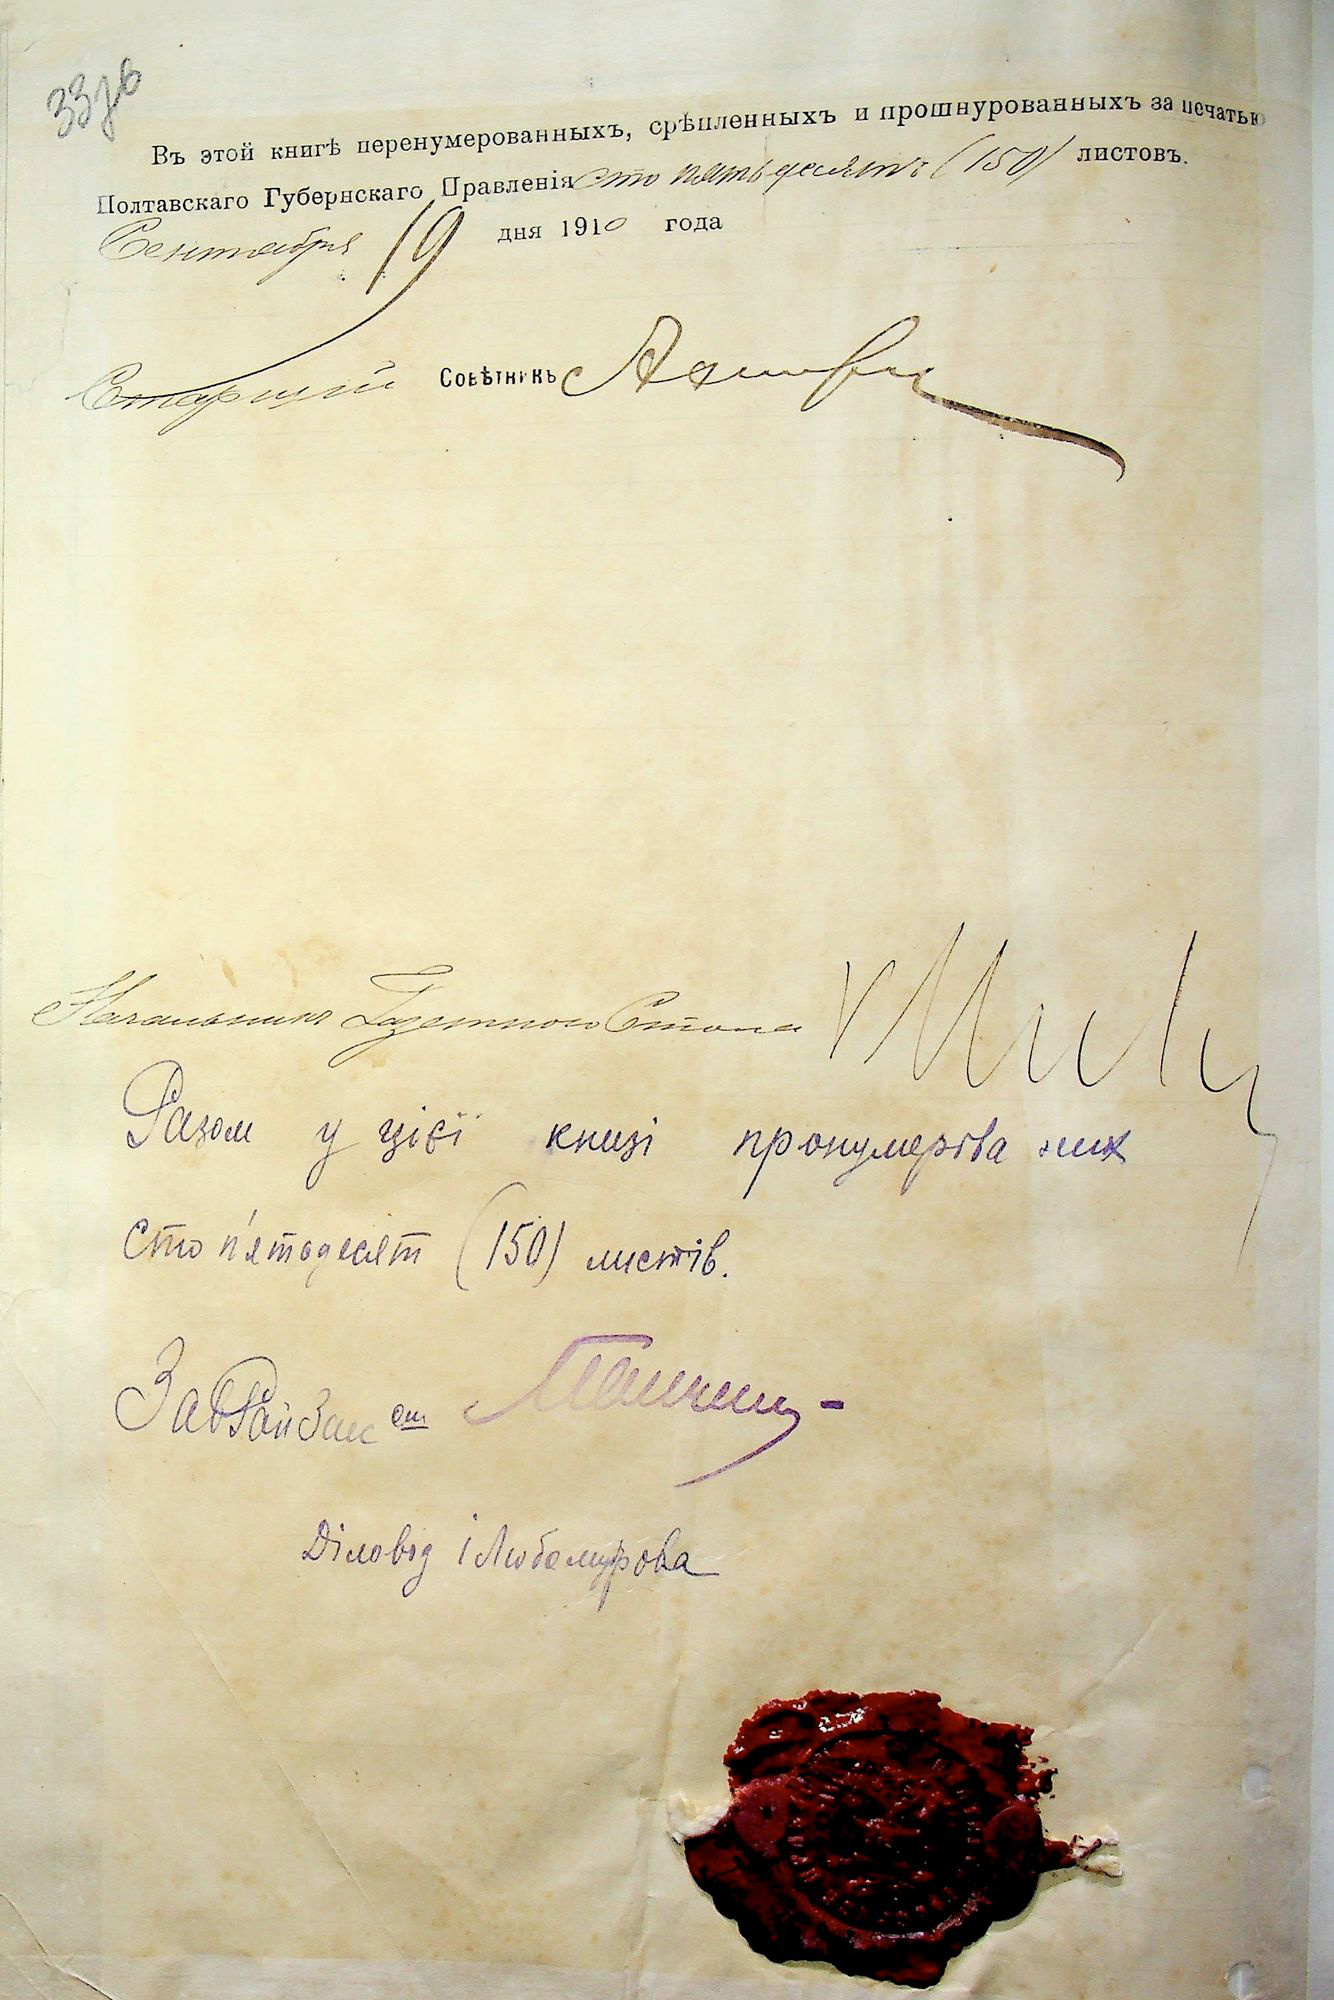 33зв
Въ этой книгѣ перенумерованныхъ, срѣпленныхъ и прошнурованныхъ за печатью
Полтавскаго Губернскаго Правленія сто пятьдесятъ (150) листовъ.
Сентября 19 дня 1910 года
Старшій Совѣтникъ
Начальникъ Газетного Стола
Разом у цієї книзі пронумерованих
сто п'ятьдесят (150) листів.
ЗавРайЗаг
Діловод